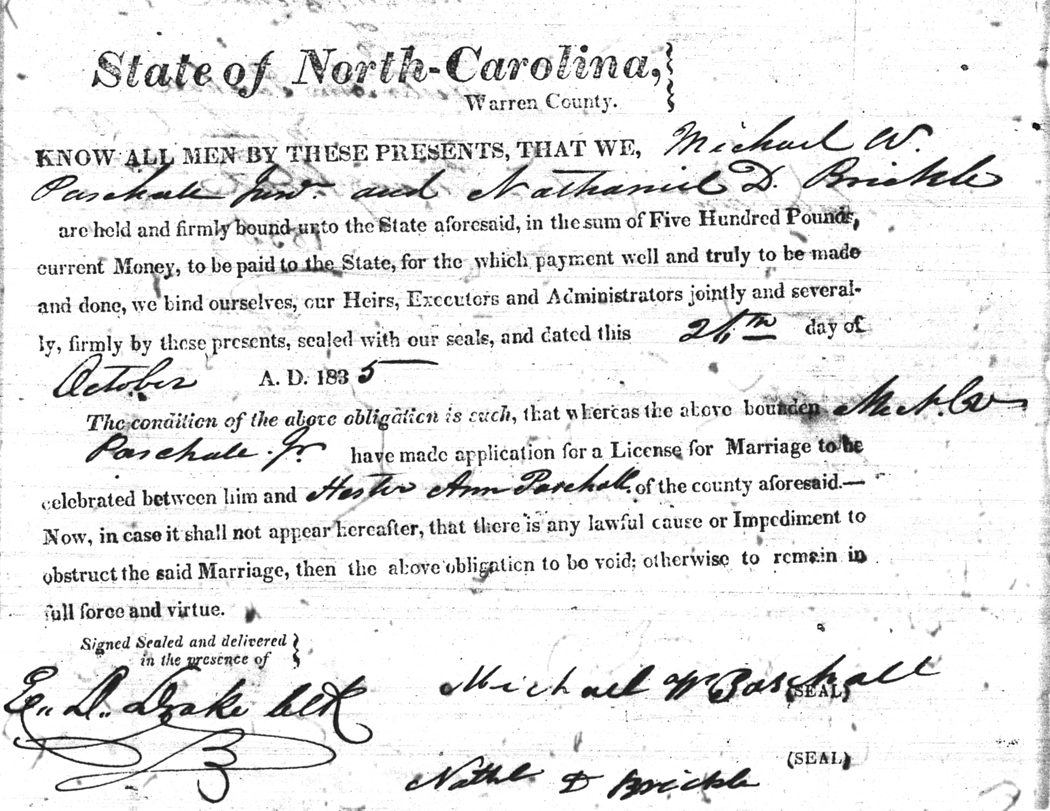 State of North-Carolina,
Warren County.
KNOW ALL MEN BY THESE PRESENTS, THAT WE, Michael W.
Paschall Junr. and Nathaniel D. Brickle
are held and firmly bound unto the State aforesaid, in the sum of Five Hundred Pounds,
current Money, to be paid to the State, for the which payment well and truly to be made
and done, we bind ourselves, our Heirs, Executors and Administrators jointly and several-
ly, firmly by these presents, sealed with our seals, and dated this day of
October A. D. 1835
The condition of the above obligation is such, that whereas the above bounden
Paschall Jr. have made application for a License for Marriage to be
celebrated between him and Ann Paschall of the county aforesaid.—
Now, in case it shall not appear hereafter, that there is any lawful cause or Impediment to
obstruct the said Marriage, then the above obligation to be void; otherwise to remain in
full force and virtue.
Signed Sealed and delivered
in the presence of
Drake Clk
Michael W Paschall (SEAL)
(SEAL)
Nathl D Brickle